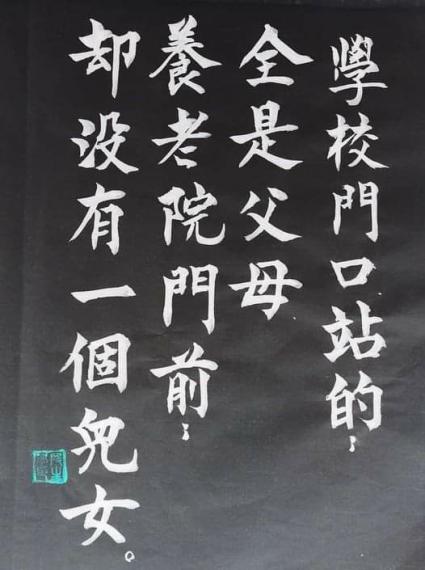 學校門口站的，
全是父母
養老院門前，
却没有一個兒女。